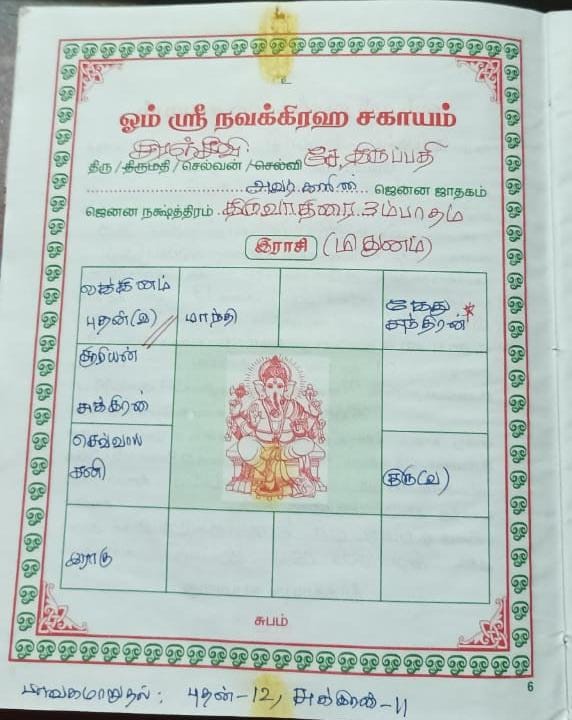 உ
ஓம் ஸ்ரீ நவக்கிரஹ சகாயம்
திரு / திருமதி / செல்வன் / செல்வி சே. திருப்பதி
அவர்களின் ஜெனன ஜாதகம்
ஜெனன நக்ஷத்திரம் திருவாதிரை 3ம்பாதம்
இராசி (மிதுனம்)
லக்கினம்
புதன்(வ) மாந்தி கேது சந்திரன் *
சூரியன்
சுக்கிரன்
செவ்வாய்
சனி குரு(வ)
ராகு
சுபம்
6
பாவகமாறுதல்: புதன்-12, சுக்கிரன்-11